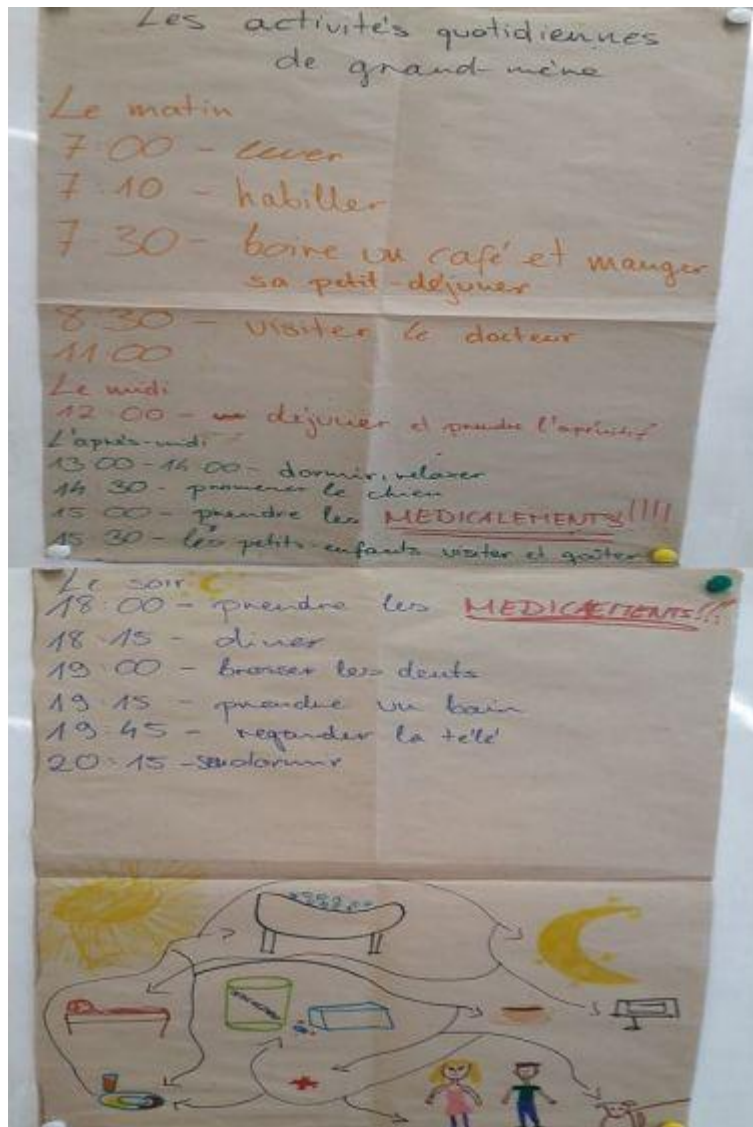 Les activités quotidiennes
de grand-mère
Le matin
7:00 - lever
7:10 - habiller
7:30 - boire un café et manger
sa petit-déjuner
8:30 - visiter le docteur
11:00
Le midi
12:00 - déjuner et prendre l'apéritif
L'après-midi
13:00-14:00 - dormir, relaxer
14:30 - promener le chien
15:00 - prendre les MEDICALEMENTS!!!!
15:30 - les petits-enfants visiter et goûter
Le soir
18:00 - prendre les
18:15 - diner
19:00 - brosser les dents
19:15 - prendre un bain
19:45 - regarder la télé
20:15 -